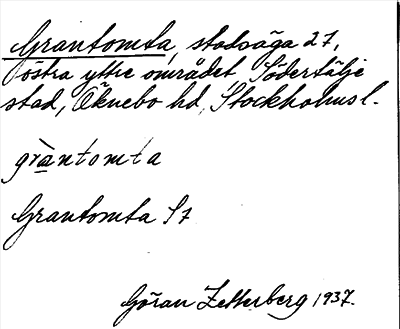 Grantomta, stadsäga 27,
östra yttre området Södertälje
stad, Öknebo hd, Stockholms l.
gràntomta
Grantomta S7
Göran Zetterberg 1937.